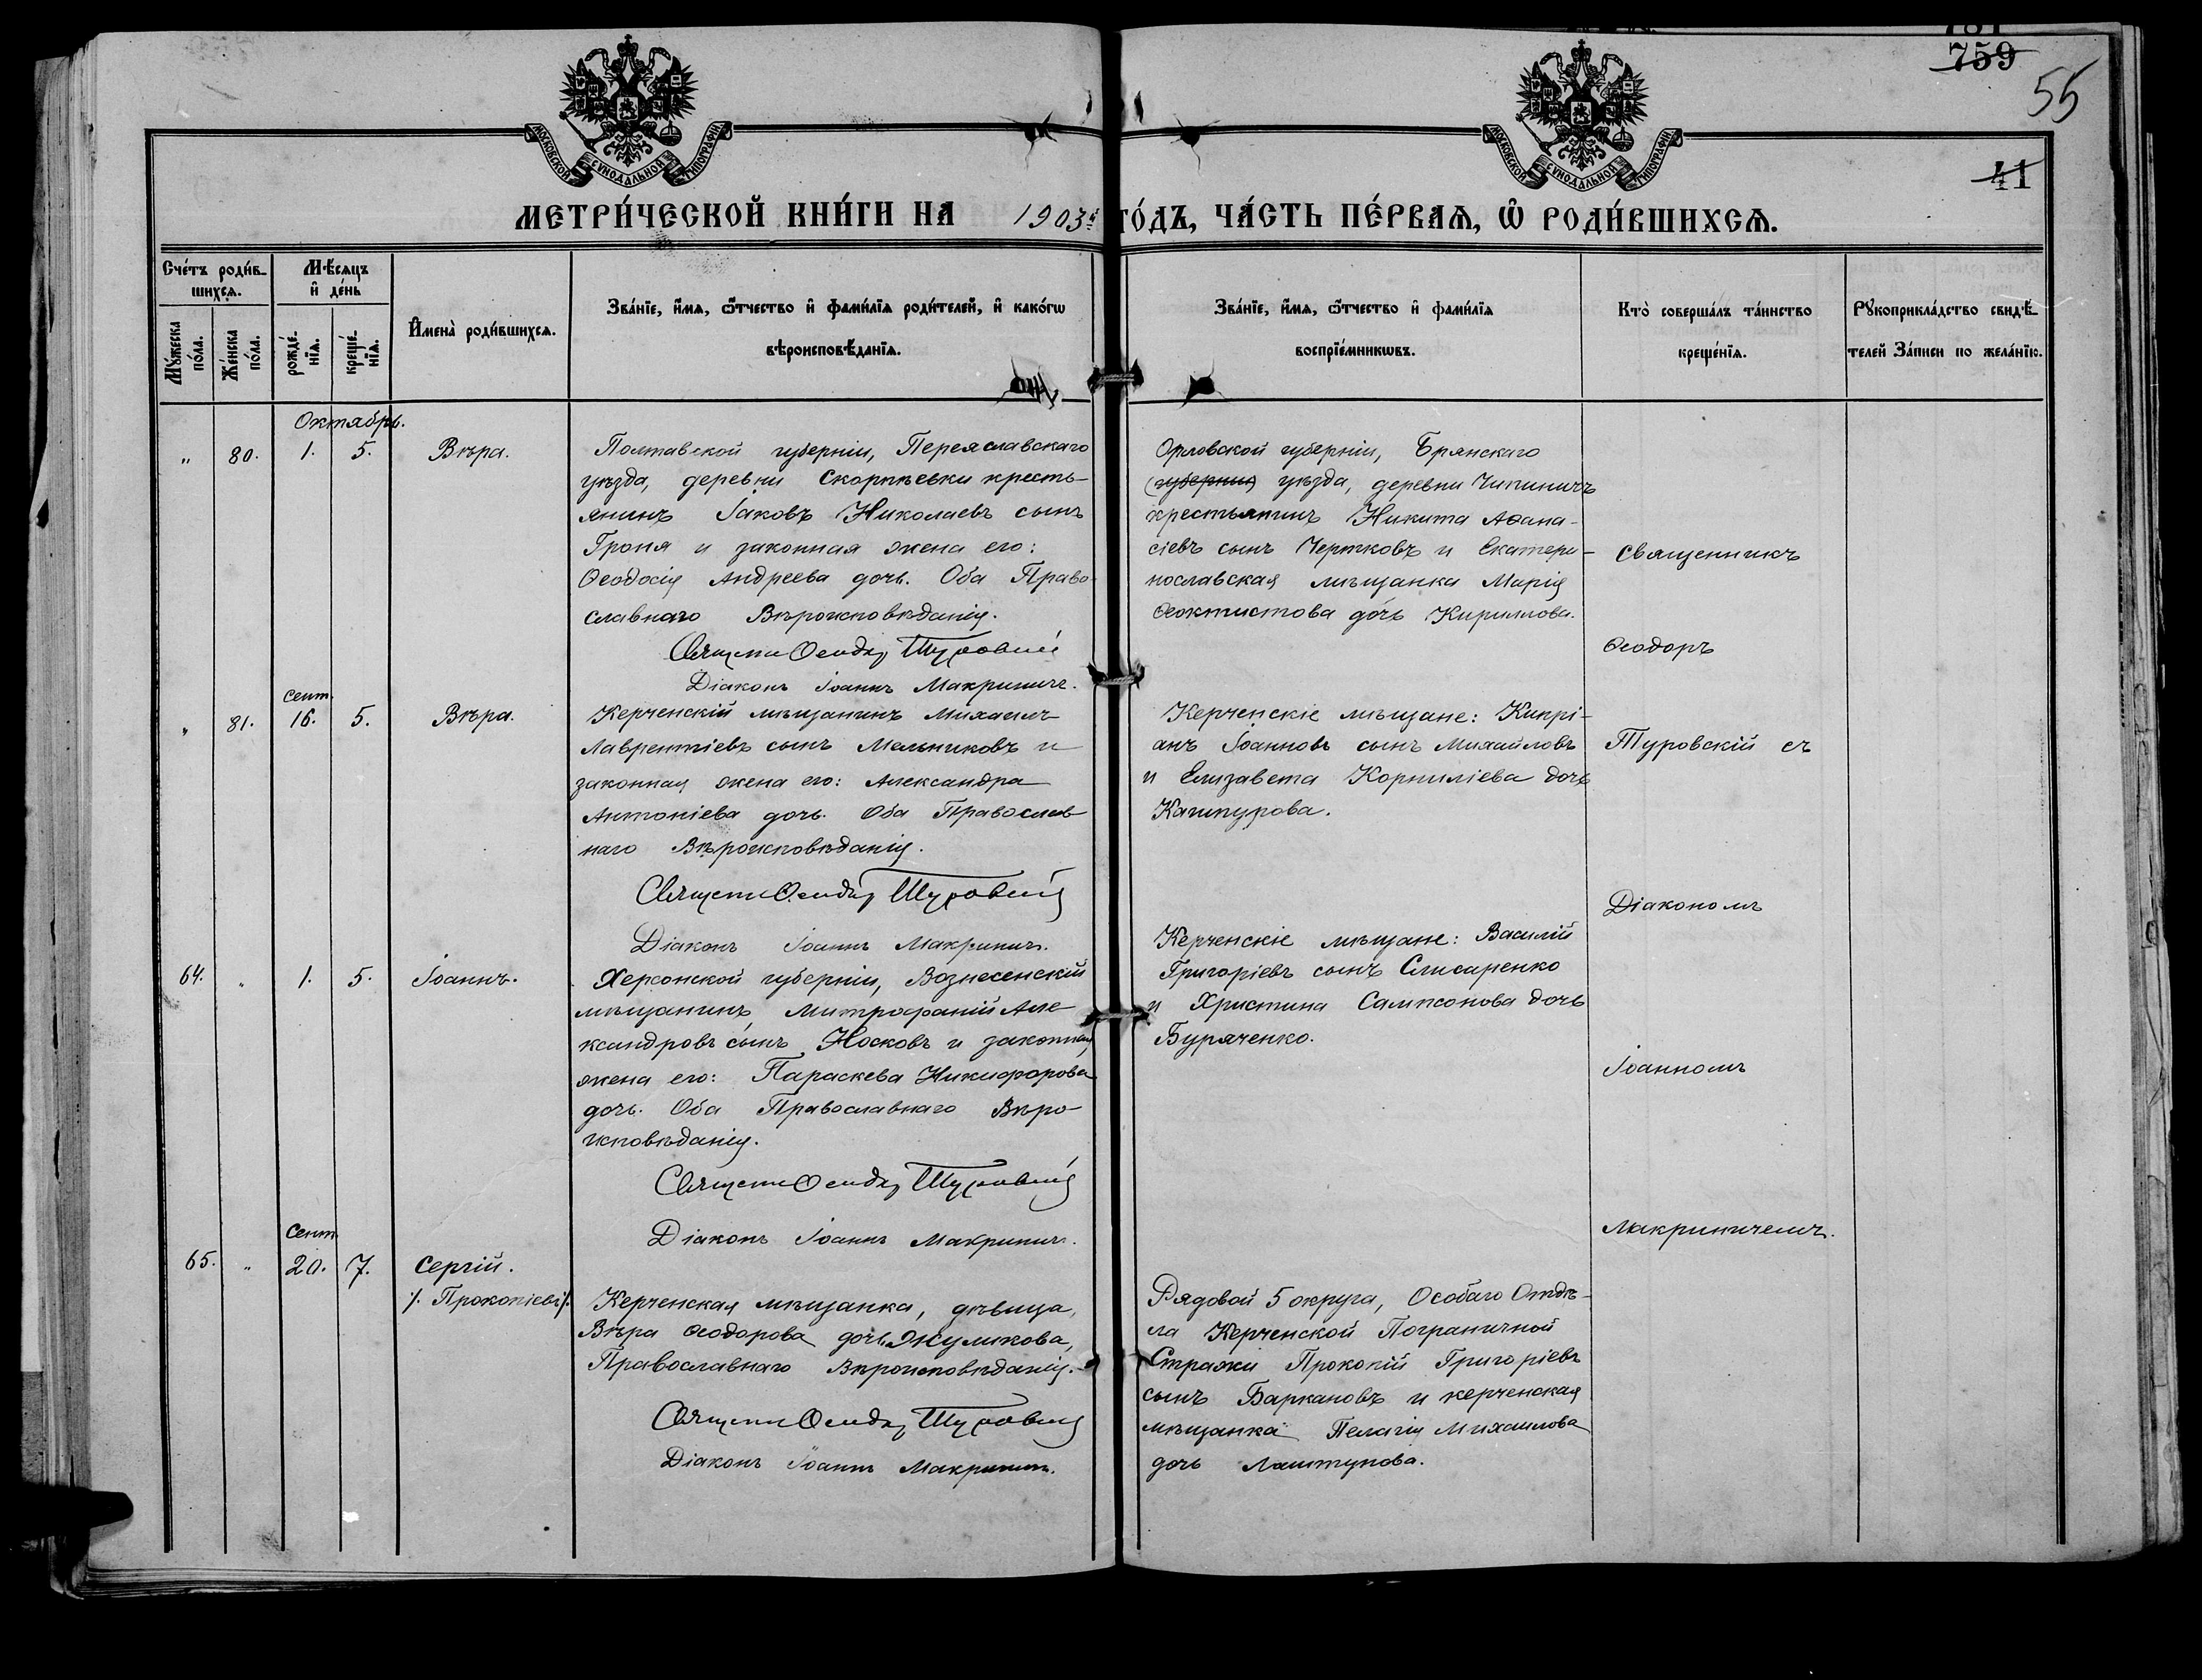 781
759
55
41
МОСКОВСКОЙ СѴНОДАЛЬНОЙ ТИПОГРАФІИ
МОСКОВСКОЙ СѴНОДАЛЬНОЙ ТИПОГРАФІИ
МЕТРИ́ЧЕСКОЙ КНИ́ГИ НА 1903й ГО́ДЪ, ЧА́СТЬ ПЕ́РВАѦ, Ѡ РОДИ́ВШИХСѦ.
Сче́тъ роди́в-
шихсѧ.
Мѣ́сѧцъ
и де́нь
Мꙋ́жеска
по́ла.
Же́нска
по́ла.
рожде́-
нїѧ.
креще́-
нїѧ.
Имена̀ роди́вшихсѧ.
Зва́нїе, и́мѧ, ѻ́тчество и фами́лїѧ роди́телей, и како́гѡ
вѣроисповѣ́данїѧ.
Зва́нїе, и́мѧ, ѻ́тчество и фами́лїѧ
воспрїе́мникѡвъ.
Кто̀ соверша́лъ та́инство
креще́нїѧ.
Рꙋкоприкла́дство свидѣ́-
телей за́писи по жела́нїю.
Октябрь.
„ 80. 1. 5. Вѣра.
Полтавской губерніи, Переяславскаго
уѣзда, деревни Скорпѣевки кресть-
янинъ Іаковъ Николаевъ сынъ
Гроня и законная жена его:
Ѳеодосія Андреева дочь. Оба Право-
славнаго Вѣроисповѣданія.
Священ Ѳеодор Туровскій
Діаконъ Іоаннъ Макриничъ.
Орловской губерніи, Брянскаго
(губерніи) уѣзда, деревни Чипиничъ
крестьянинъ Никита Аѳана-
сіевъ сынъ Чертковъ и Екатери-
нославская мѣщанка Марія
Ѳеоктистова дочь Кириллова.
сент.
„ 81. 16. 5. Вѣра.
Керченскій мѣщанинъ Михаилъ
Лаврентіевъ сынъ Мельниковъ и
законная жена его: Александра
Антоніева дочь. Оба Православ
наго Вѣроисповѣданія.
Священ Ѳеодор Туровскій
Діаконъ Іоаннъ Макриничъ.
Керченскіе мѣщане: Кипрі-
анъ Іоанновъ сынъ Михайловъ
и Елизавета Корниліева дочь
Кашпурова.
64. „ 1. 5. Іоаннъ.
Херсонской губерніи, Вознесенскій
мѣщанинъ Митрофаній Але
ксандровъ сынъ Носковъ и законная
жена его: Параскева Никифорова
дочь. Оба Православнаго Вѣро-
исповѣданія.
Священ Ѳеодор Туровскій
Діаконъ Іоаннъ Макриничъ.
Керченскіе мѣщане: Василій
Григоріевъ сынъ Слисаренко
и Христина Сампсонова дочь
Буряченко.
сент
65. „ 20. 7. Сергій.
/. Прокопіевъ/.
Керченская мѣщанка, дѣвица,
Вѣра Ѳеодорова дочь Жуликова,
Православнаго Вѣроисповѣданія.
Священ Ѳеодор Туровскій
Діаконъ Іоаннъ Макриничъ.
Рядовой 5 округа, Особаго Отдѣ-
ла Керченской Пограничной
Стражи Прокопій Григоріевъ
сынъ Баркановъ и керченская
мѣщанка Пелагія Михаилова
дочь Лаштунова.
Священникъ
Ѳеодоръ
Туровскій съ
Діакономъ
Іоанномъ
Макриничемъ.